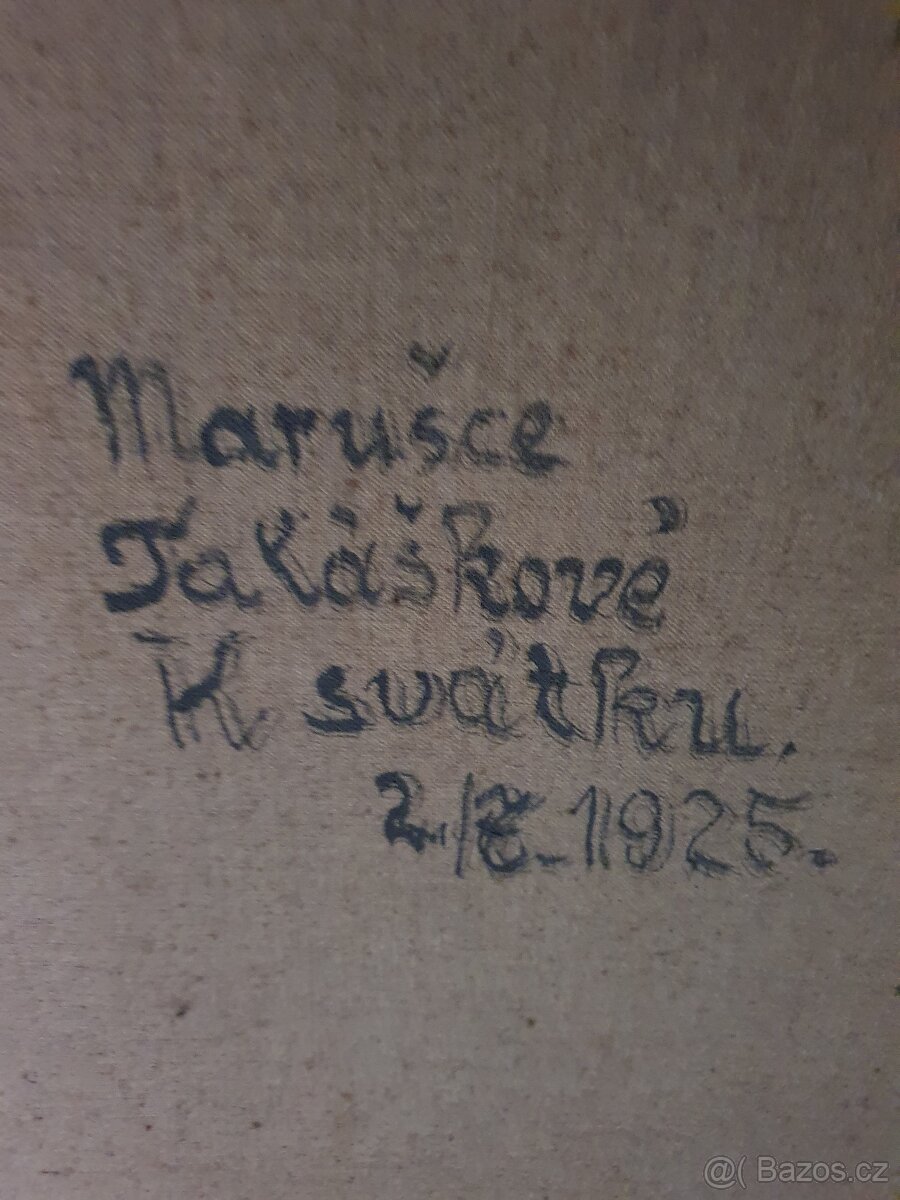 Marušce
Taláškové
K svátku.
2./7. 1925.
@( Bazos.cz